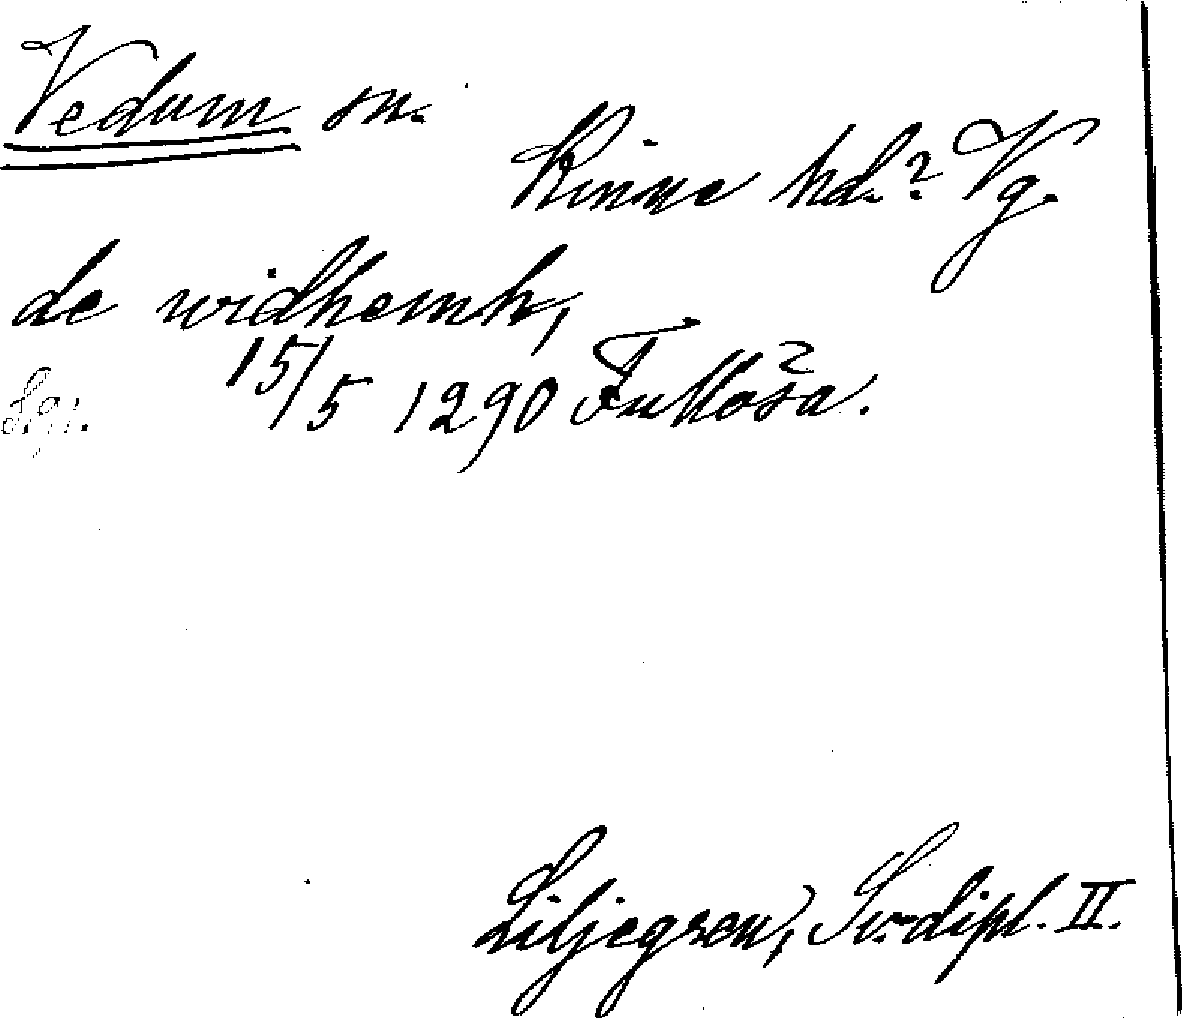 Vedum sn.
Kinne hd.? Vg.
de widhemh,
15/5 1290 Fullösa.
Liljegren, Sv. dipl. II.